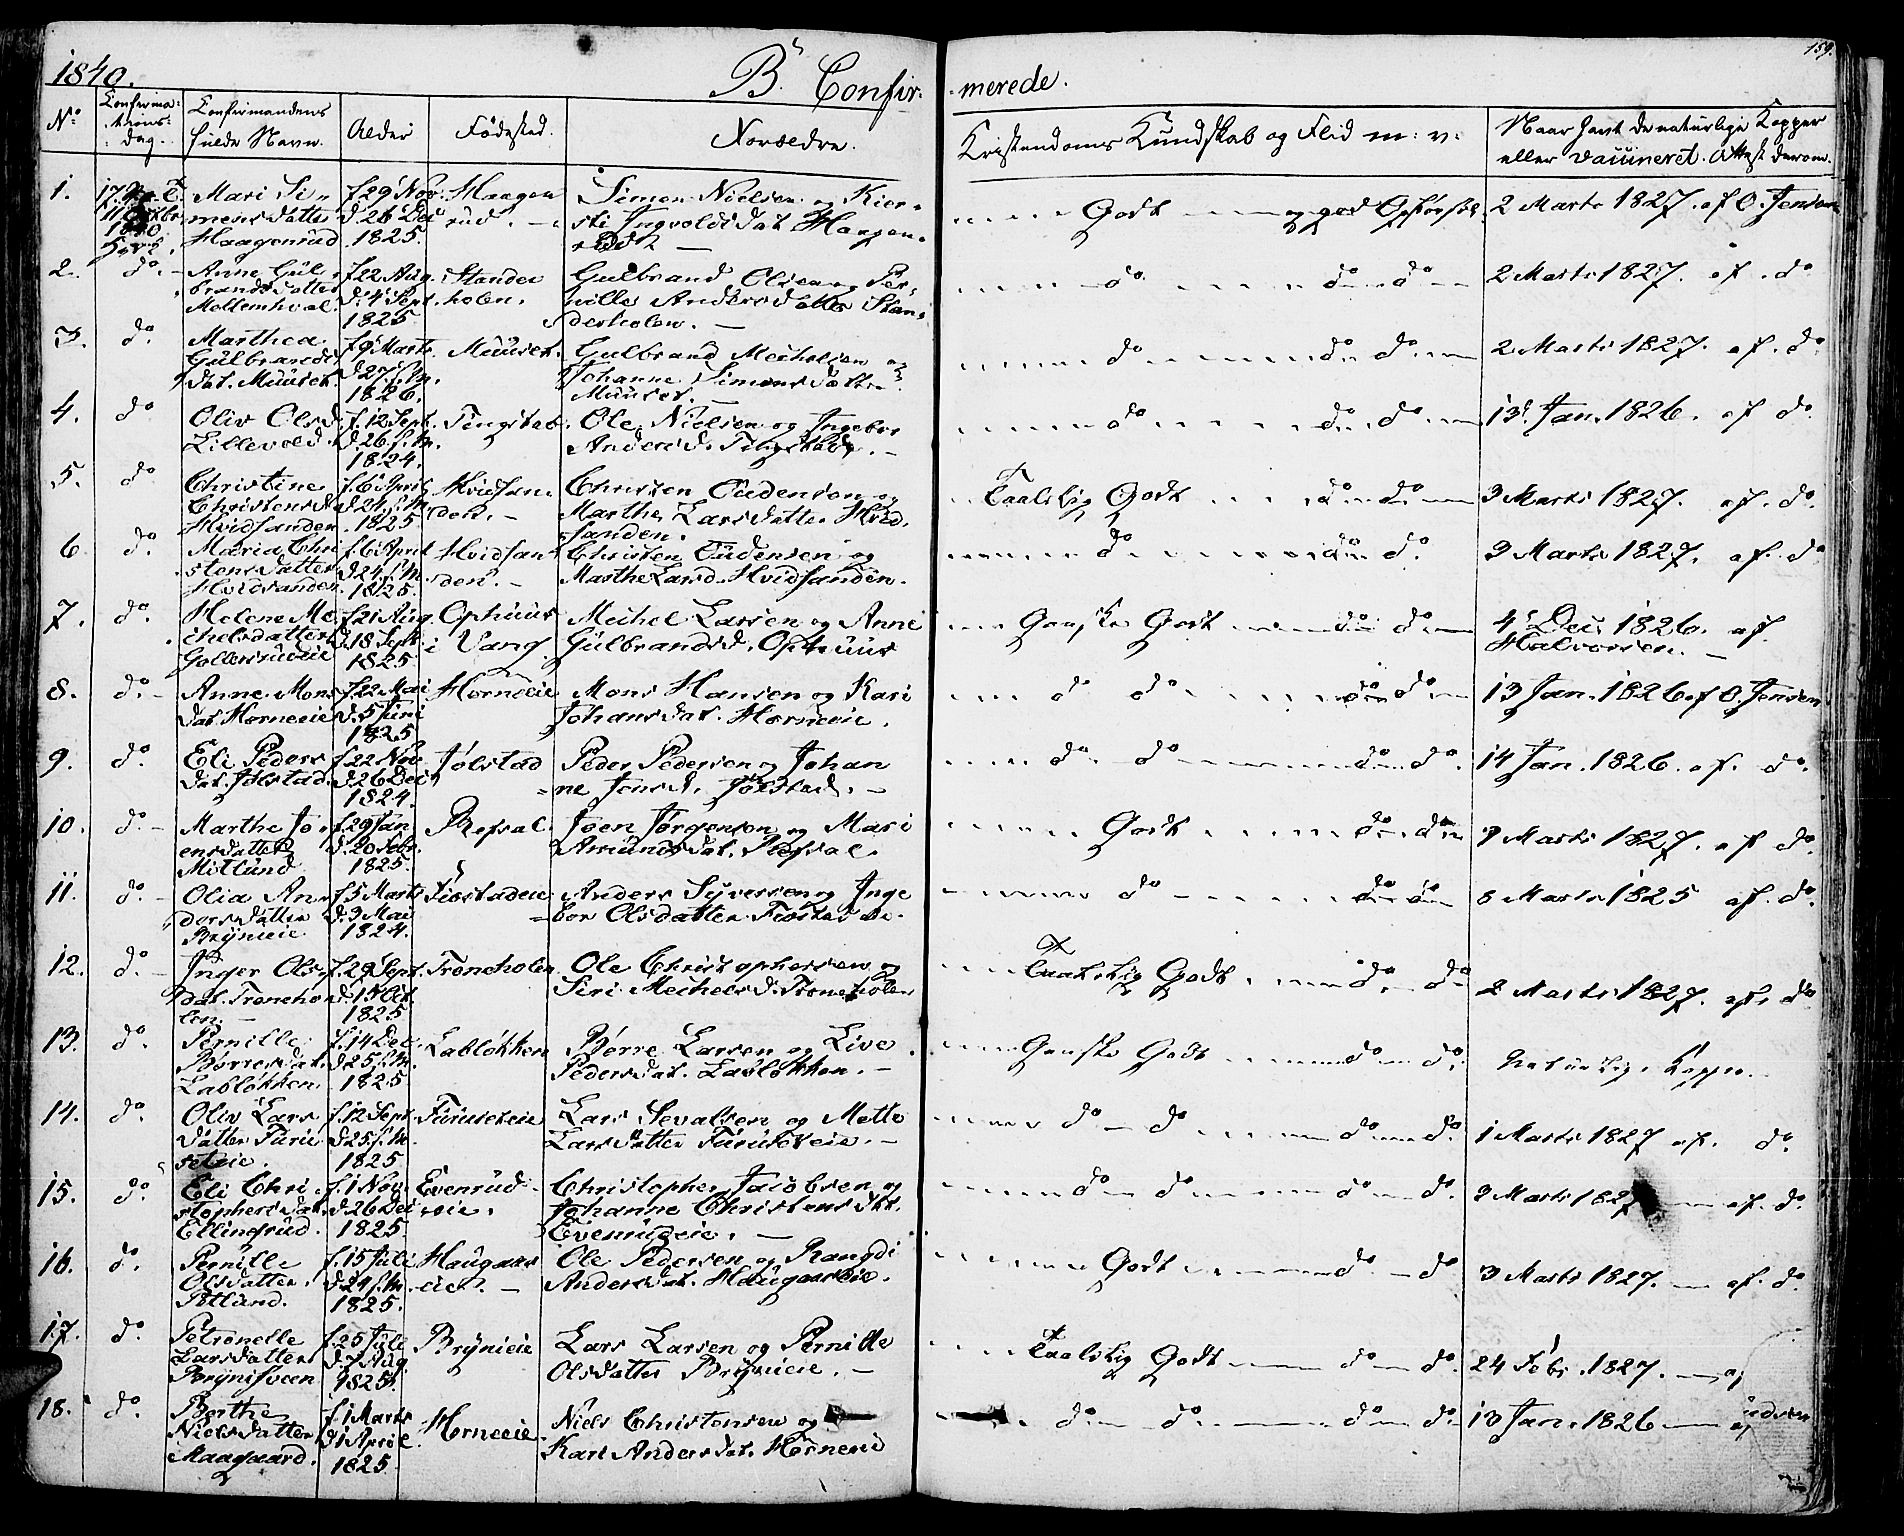 1840.
B. Confir- merede.
159.
No
Confirma-
tions-
dag.
Confirmandens
fulde Navn.
Alder
Fødested.
Forældre.
Kristendoms Kundskab og Flid m: v:
Naar havt de naturlige Kopper
eller vaccineret. Attest derom.
1.
1840
Mari Si-
mensdatter
Haagenrud
f. 29 Nov.
d. 26 Dec
1825.
Haagen
rud.
Simen Nielsen og Kier-
sti Ingvoldsdat. Haagen-
rud
Godt
og god Opførsel.
2 Marts 1827. af O. Jensen
2.
do.
Anne Gul-
brandsdatter
f. 22 Aug.
d. 4 Sept.
1825
Stander
holen.
Gulbrand Olsen og Per-
nille Andersdatter Stan-
derholen.
do
do do
2 Marts 1827. af. do
3.
do.
Marthea
Gulbrands
dat. Muuset.
f. 9 Marts.
d. 27 s. M.
1826.
Muuset.
Gulbrand Michelsen og
Johanne Simensdatter
Muuset.
do
do do.
2 Marts 1827. af. do.
4.
do
Oliv Olsd.
Lillevold.
f. 12 Sept.
d. 26. s. M.
1824.
Tingstad.
Ole Nielsen og Ingebor
Andersd. Tingstad.
do
do do.
13 Jan. 1826. af do.
5.
do
Christine
Christensd.
Hvidsanden
f. 6 April
d. 24. s. M.
1825
Hvidsan-
den.
Christen Gudensen og
Marthe Larsdatter Hvid-
sanden.
Taalelig Godt
do do
3 Marts 1827. af. do.
6.
do.
Maria Chri
stensdatter
Hvidsanden
f. 6 April
d. 24. s. M.
1825.
Hvidsan
den.
Christen Gudensen og
Marthe Larsd. Hvidsanden.
do
do do.
3 Marts 1827. af. do
7.
do.
Helene Mi
chelsdatter
f. 21 Aug.
d. 18 Sept
1825
Ophuus
i Vang
Michel Larsen og Anne
Gulbrandsd. Ophuus
Ganske Godt
do do
4 Dec 1826. af.
Halvorsen.
8.
do.
Anne Mons
dat. Horneeie
f. 22 Mai
d. 5 Juni
1825
Horneeie
Mons Hansen og Kari
Johansdat. Horneeie.
do do
do do.
13 Jan. 1826 af O Jensen
9.
do.
Eli Peders
dat. Jølstad.
f. 22 Nov
d. 26 Dec
1824.
Jølstad
Peder Pedersen og Johan
ne Jensd. Jølstad.
do do
do do.
14 Jan. 1826. af. do.
10.
do.
Marthe Jo-
ensdatter
Mitlund
f. 29 Jan
d. 20 Febr.
1825.
Refsal.
Joen Jørgensen og Mari
Amundsdat. Refsal.
Godt
do do
Marts 1827. af. do.
11.
do.
Olia An-
dersdatter
Brynieie.
f. 5 Marts
d. 9 Mai
1824.
Fiøstadeie
Anders Syversen og Inge
bor Olsdatter Fiøstadeie.
do
do do
8 Marts 1825 af. do.
12.
do.
Inger Ols-
dat. Troneho
len.
f. 29 Sept.
d. 15 Oct
1825
Troneholen
Ole Christophersen og
Siri Michelsd. Troneholen
Taalelig Godt
do do
2 Marts 1827. af. do
13.
do.
Pernille
Børresdat.
Labløkken
f. 14 Dec.
d. 25. s. M.
1825
Labløkken
Børre Larsen og Live
Pedersdat. Labløkken.
Ganske Godt
do do.
Naturlige Kopper.
14.
do.
Oliv Lars
datter Furu
seteie.
f. 12 Sept
d. 25. s. M.
1825
Furuseteie
Lars Sevalsen og Mette
Larsdatter Furuseteie.
do do
do do.
1 Marts 1827 af. do.
15.
do.
Eli Chri-
stophersdat.
Ellingsrud.
f. 1 Nov.
d. 26 Dec
1825.
Evenrud-
eie.
Christopher Jacobsen og
Johanne Christensdat.
Evenrudeie.
do do
do do.
3 Marts 1827 af. do.
16.
do.
Pernille
Olsdatter.
f. 15 Juli
d. 24 s. M.
1825.
Haugaas
eie.
Ole Pedersen og Rangdi
Andersdat. Haugaaseie.
Godt
do do.
3 Marts 1827. af. do.
17.
do.
Petronelle
Larsdatter
f. 25 Juli
d. 7 Aug.
1825.
Brynieie
Lars Larsen og Pernille
Olsdatter Brynieie.
Taalelig Godt
do do.
24 Febr. 1827.
18.
do.
Berthe
Nielsdatter
Maagaard.
f. 1 Marts
d. 1 April
1825.
Horneeie
Niels Christensen og
Kari Andersdat. Horneeie
do do.
do do
13 Jan. 1826